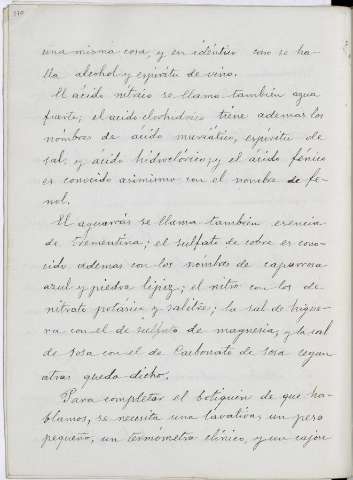 una misma cosa, y en idéntico caso se ha-
lla alcohol y espíritu de vino.
El ácido nítrico se llama tambien agua
fuerte; el ácido clorhidrico tiene ademas los
nómbres de ácido muriático, espíritu de
sal, y ácido hidroclórico; y el ácido fénico
es conocido asimismo con el nombre de fe-
nol.
El aguarrás se llama tambien esencia
de trementina; el sulfato de cobre es cono-
cido ademas con los nómbres de caparrosa
azul y piedra lipiz; el nitro con los de
nitrato potásico y salitre; la sal de higue-
ra con el de sulfato de magnesia, y la sal
de sosa con el de Carbonato de sosa segun
atras queda dicho.
Para completar el botiquin de que ha-
blamos, se necesita una lavativa, un peso
pequeño, un termómetro clínico, y un cajon